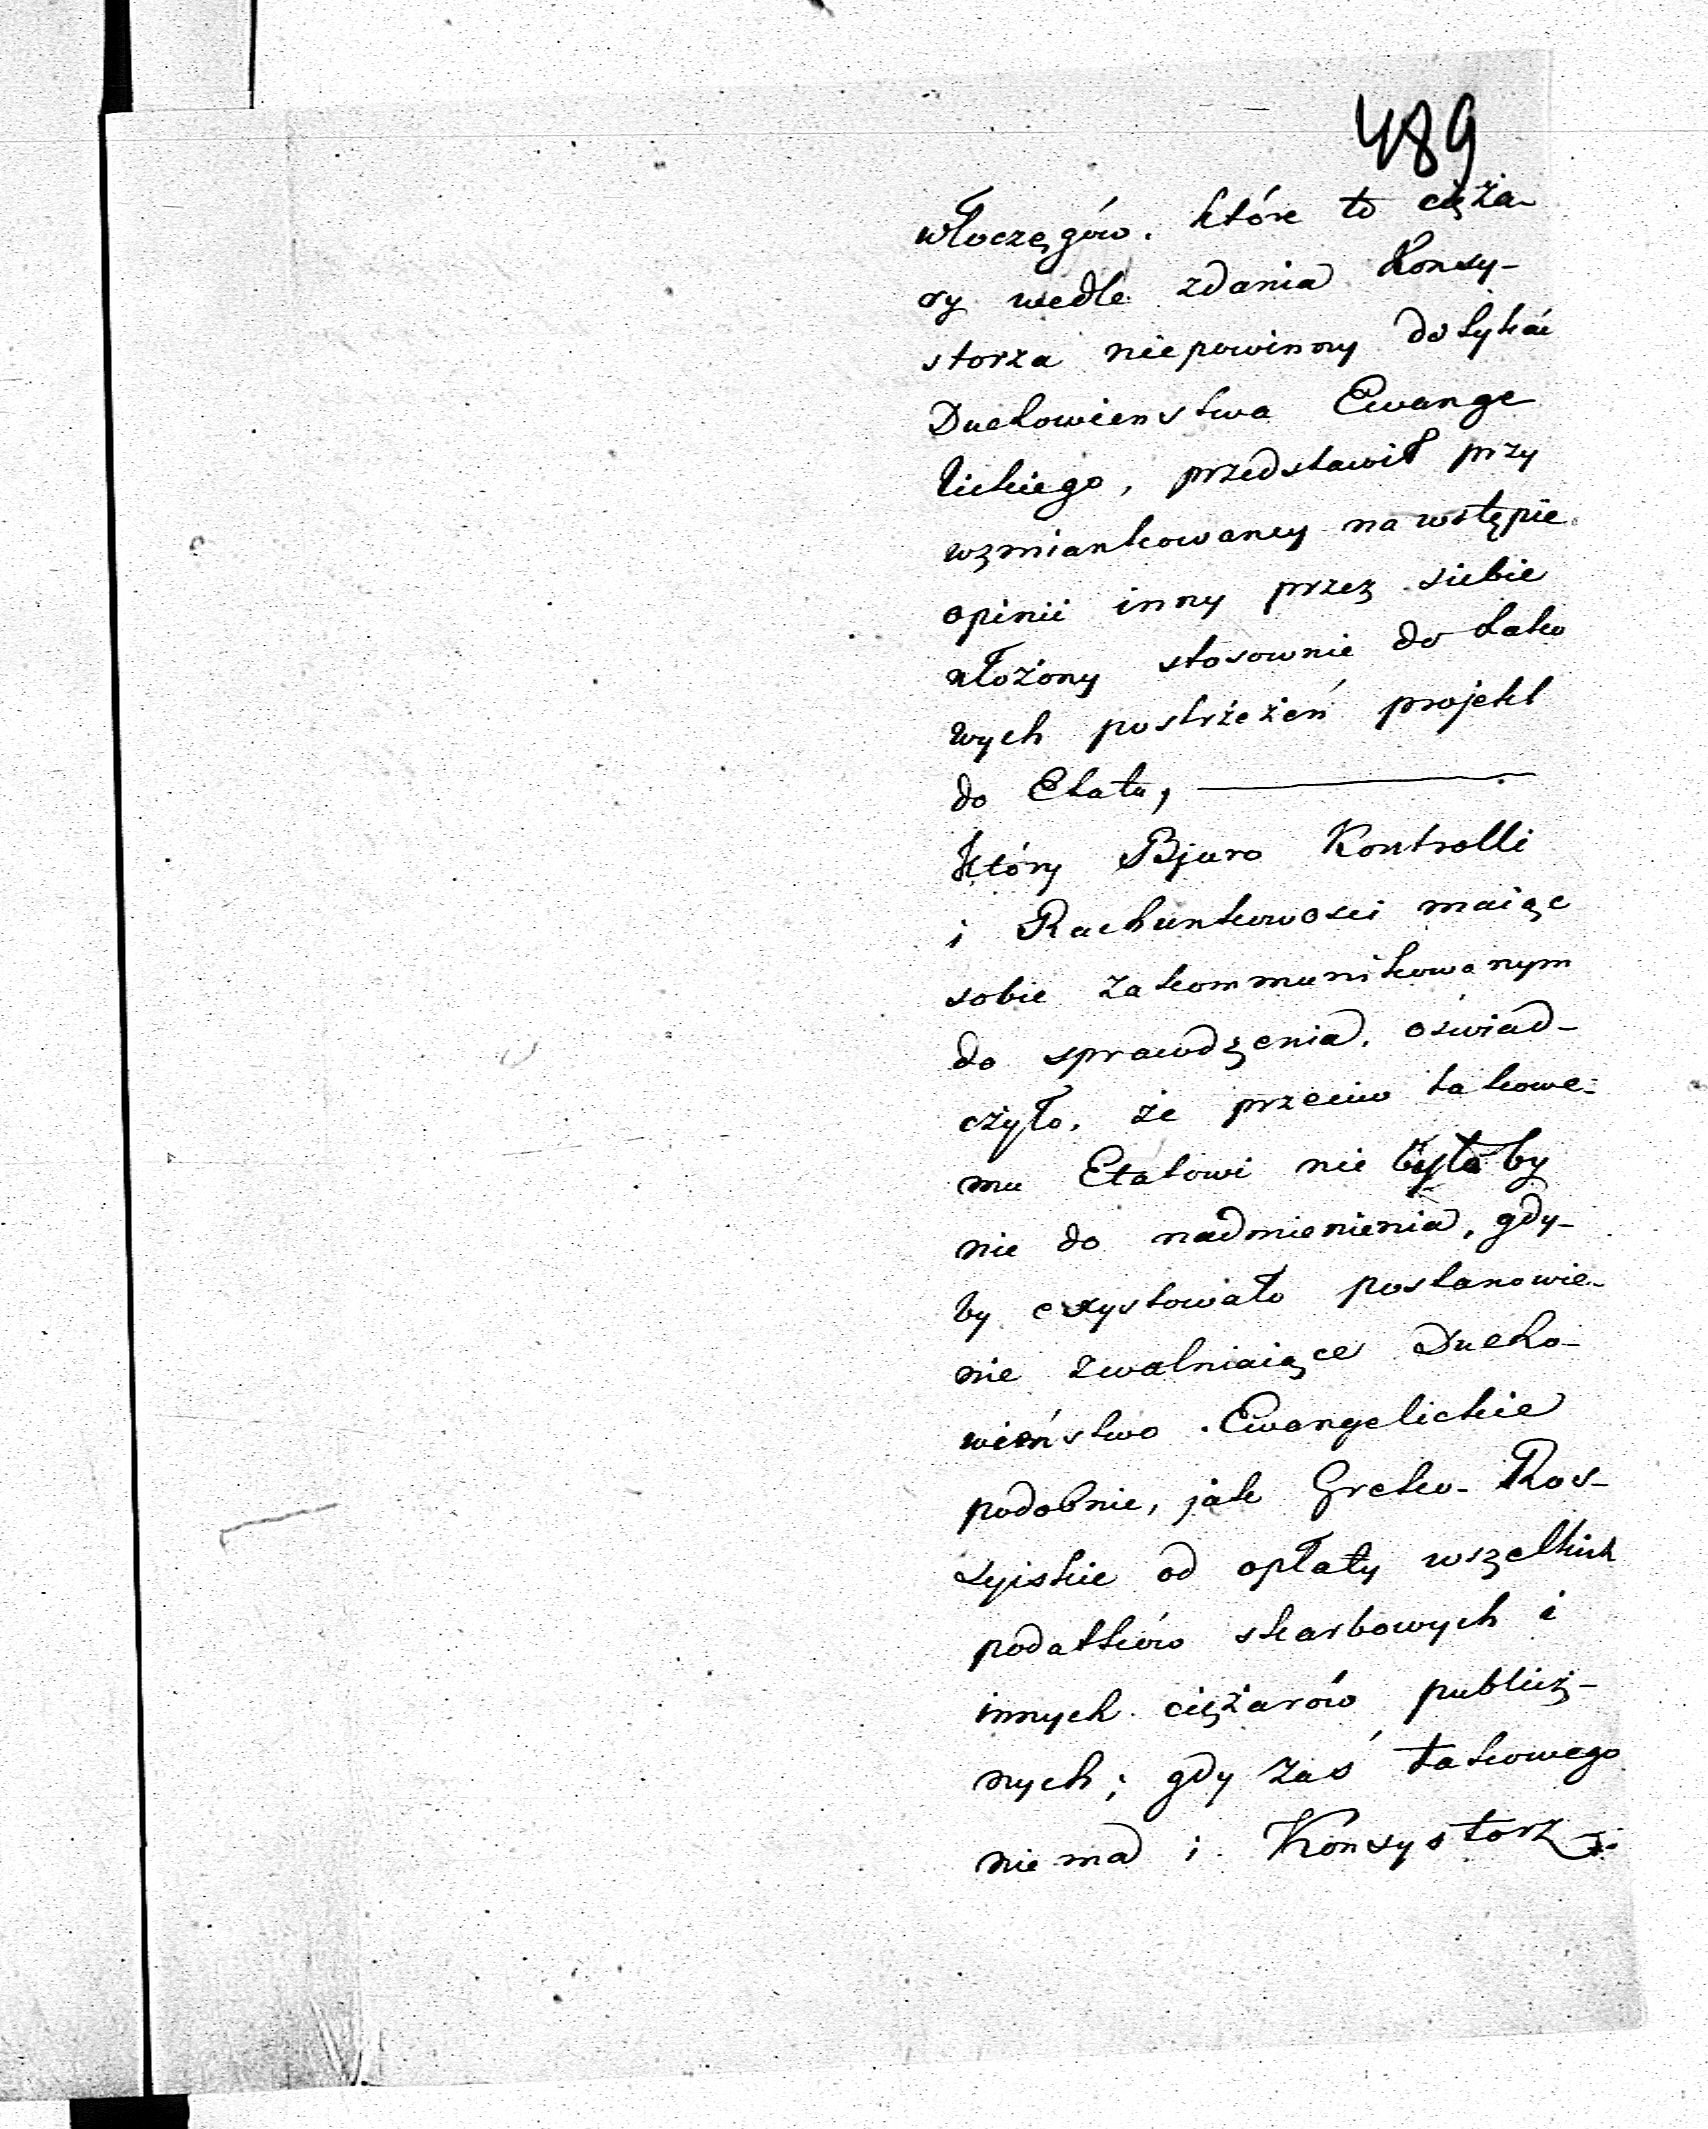 489
włoczęgów. które to cięża-
ry wedle zdania Konsy-
storza niepowinny dotykać
Duchowienstwa Ewange
lickiego, przedstawił przy
wzmiankowaney na wstępie
opinii inny przez siebie
ułożony stosownie do tako
wych postrzeżeń projekt
do Etatu,
Który Bjuro Kontrolli
i Rachunkowości maiąc
sobie zakommunikowanym
do sprawdzenia, oświad-
czyło, że przeciw takowe-
mu Etatowi nie byłoby
nic do nadmienienia, gdy-
by exystowało postanowie-
nie zwalniaiące Ducho-
wieństwo Ewangelickie
podobnie, jak Greko-Ros-
syiskie od opłaty wszelkich
podatków skarbowych i
innych ciężarów publicz-
nych; gdy zaś takowego
niema i Konsystorz